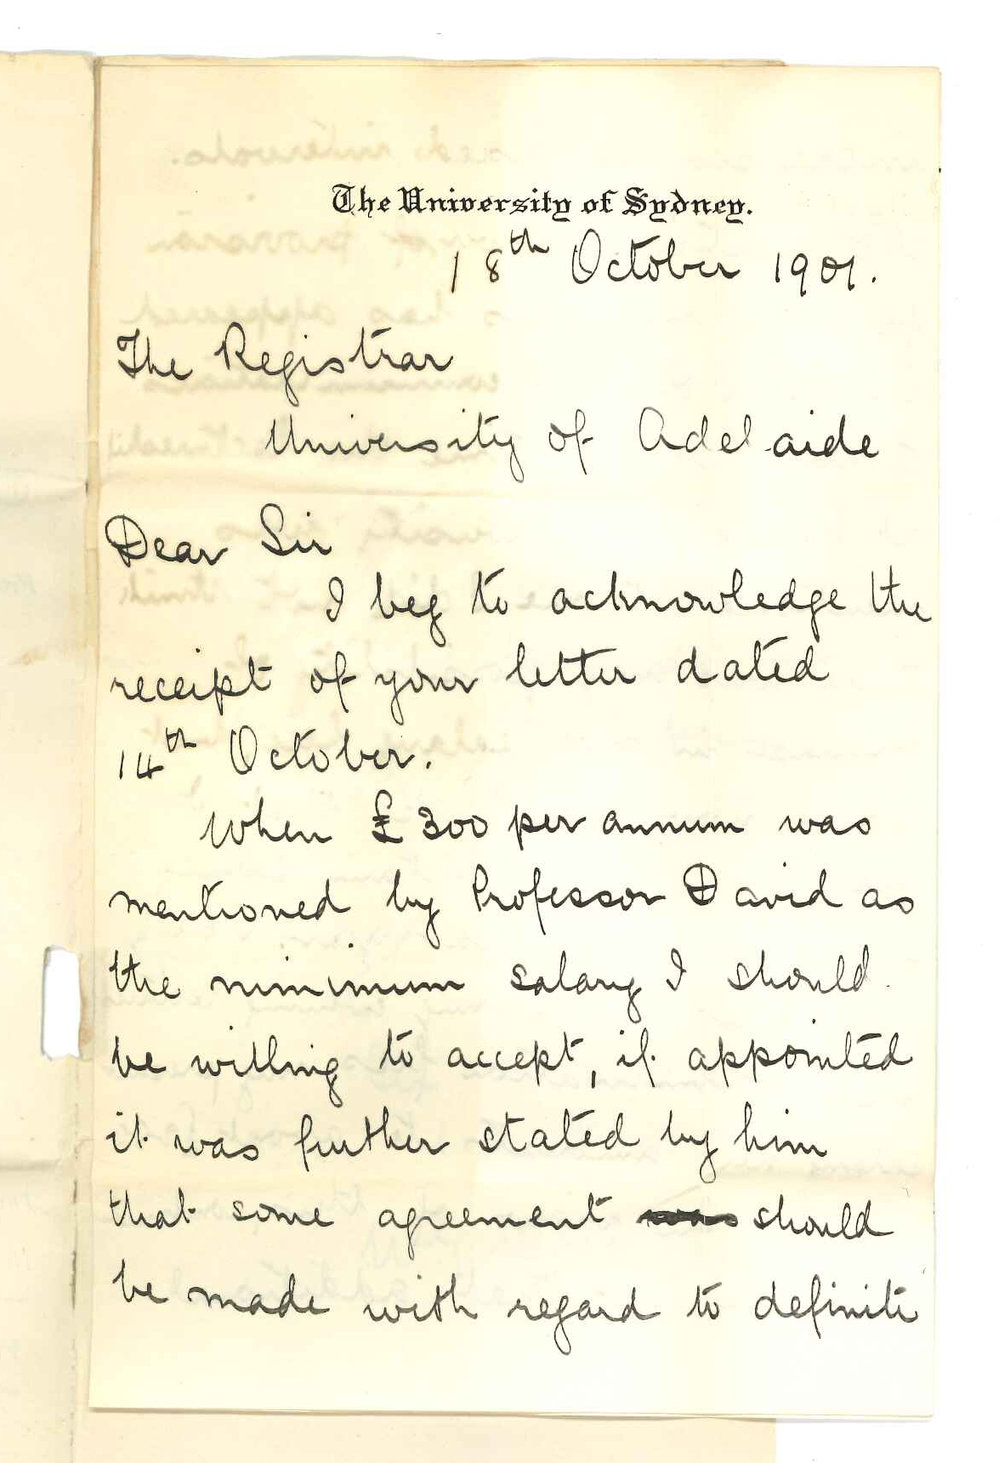 The University of Sydney.
18th October 1901.
The Registrar
University of Adelaide
Dear Sir
I beg to acknowledge the
receipt of your letter dated
14th October.
When £300 per annum was
mentioned by Professor David as
the minimum salary I should
be willing to accept, if appointed
it was further stated by him
that some agreement was should
be made with regard to definite